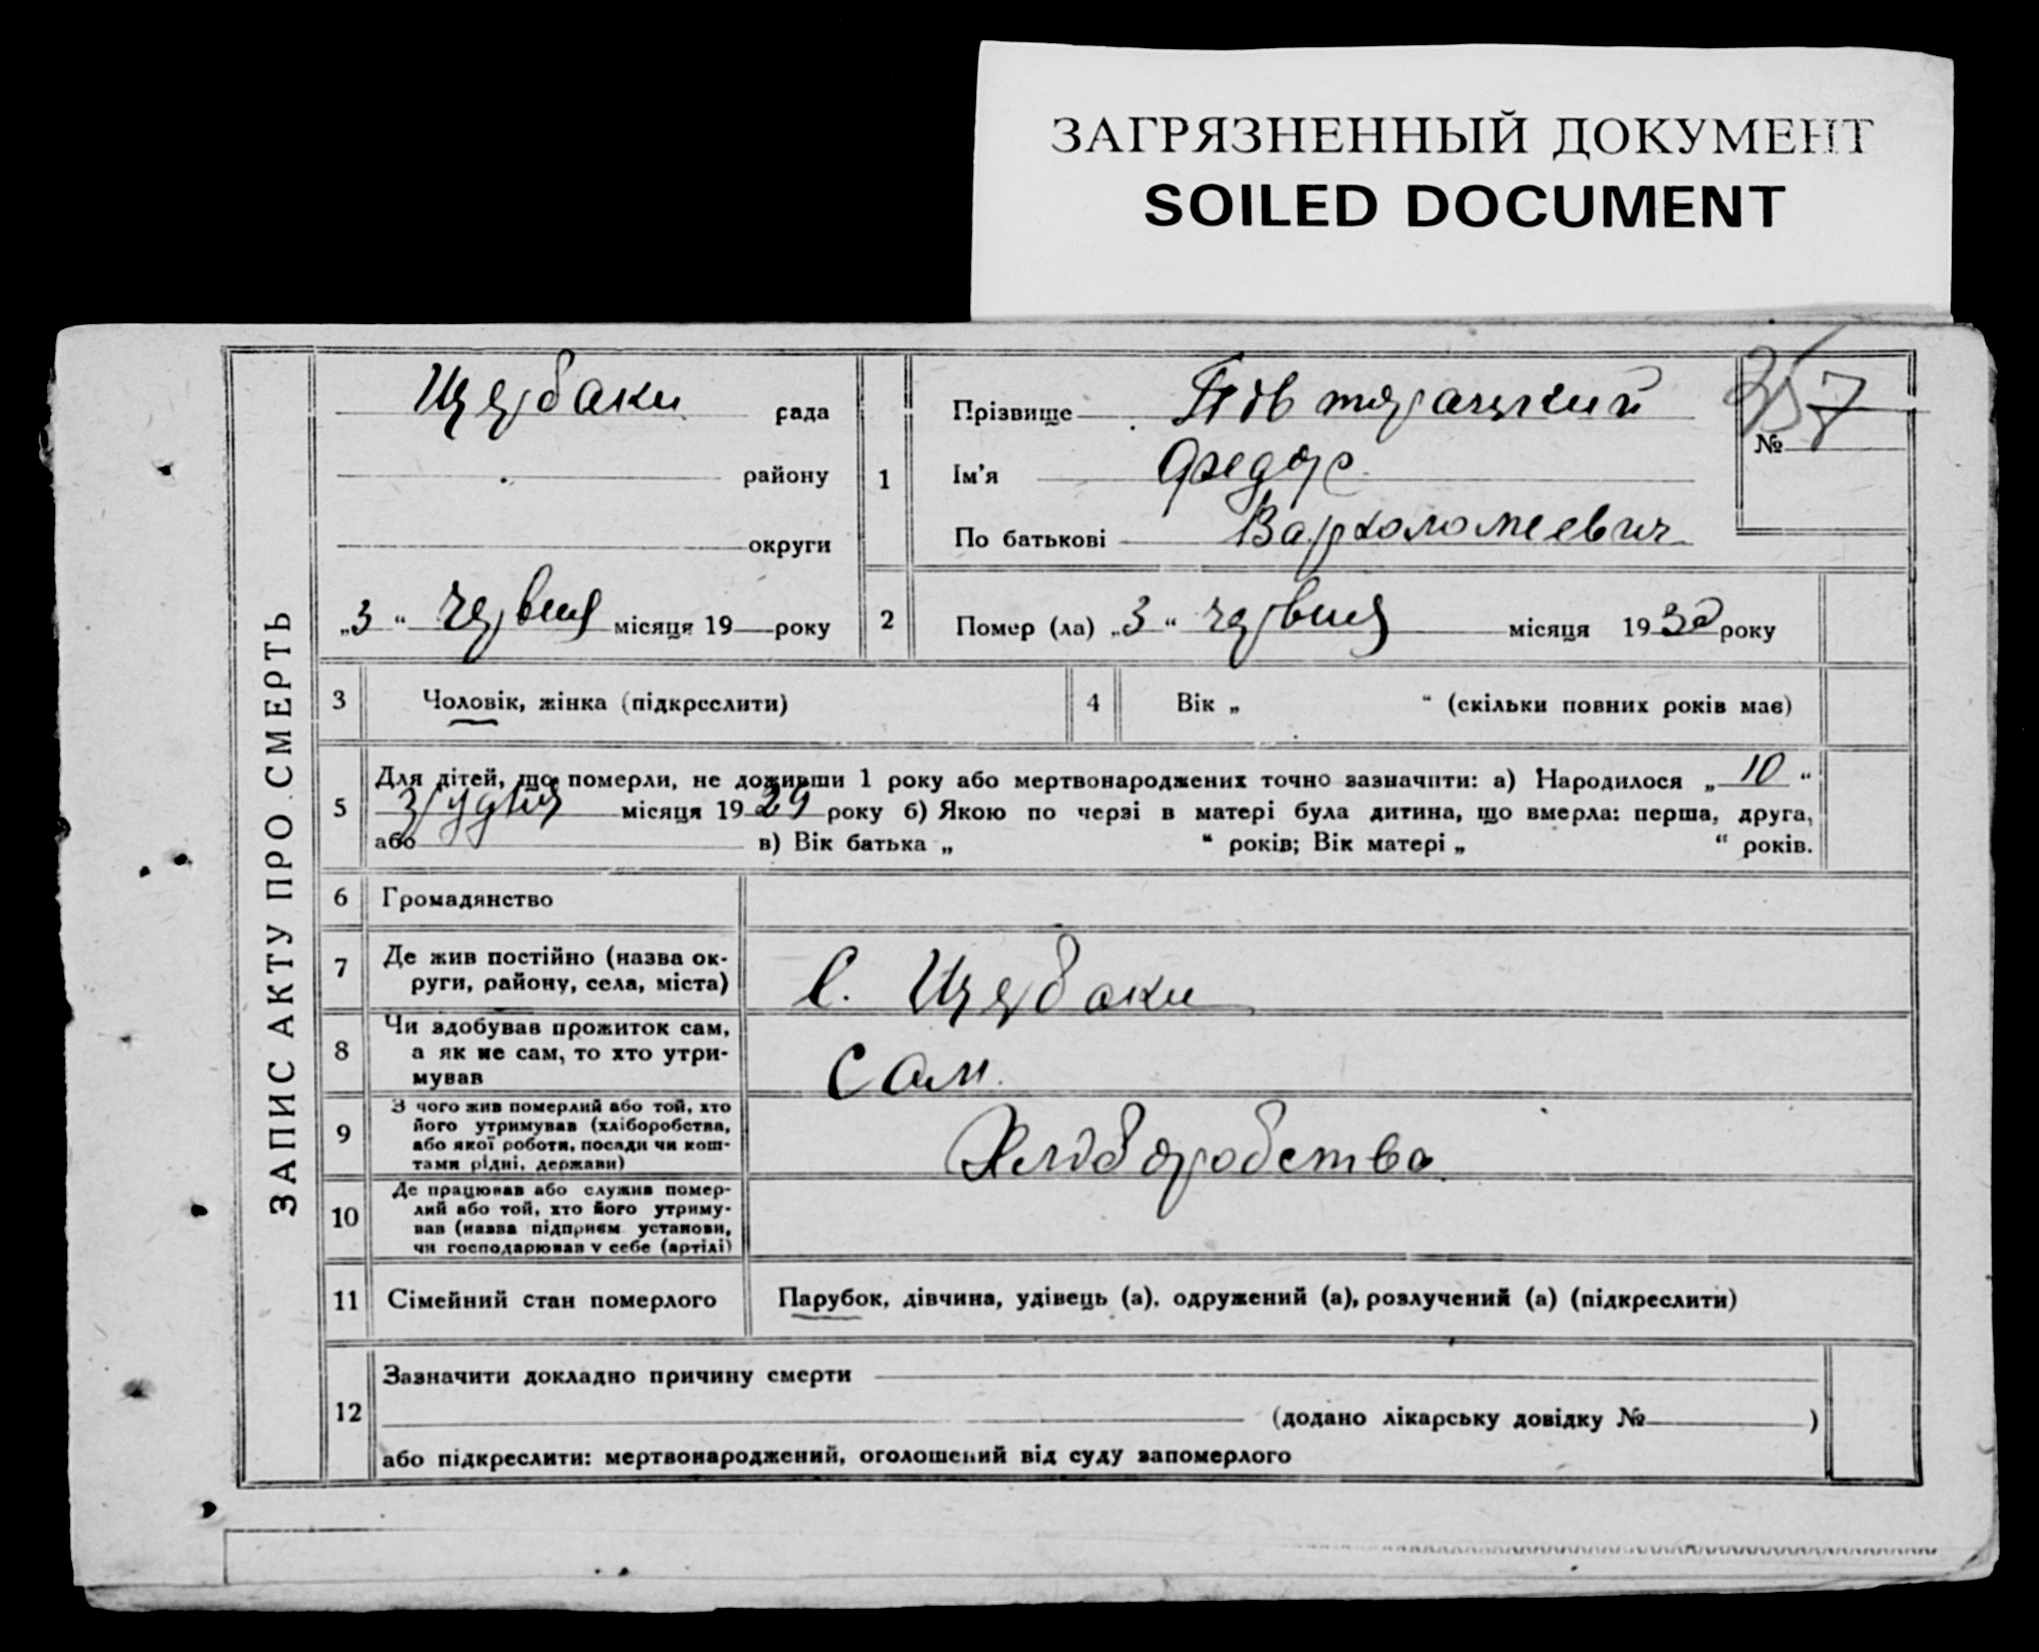 ЗАГРЯЗНЕННЫЙ ДОКУМЕНТ
SOILED DOCUMENT
ЗАПИС АКТУ ПРО СМЕРТЬ
Щербаки рада
району
округи
„3“ червня місяця 19 року
1
Прізвище Півторацький
Ім'я Федор
По батькові Вархоломеевич
№ 7
2 Помер (ла) „3“ червня місяця 1930 року
3 Чоловік, жінка (підкреслити)
4 Вік „ “ (скільки повних років має)
5 Для дітей, що померли, не доживши 1 року або мертвонароджених точно зазначити: а) Народилося „10“
грудня місяця 1929 року б) Якою по черзі в матері була дитина, що вмерла: перша, друга,
або в) Вік батька „ “ років; Вік матері „ “ років.
6 Громадянство
7 Де жив постійно (назва округи, району, села, міста) с. Щербаки
8 Чи здобував прожиток сам,
а як не сам, то хто утримував сам
9 З чого жив померлий або той, хто
його утримував (хліборобства,
або якої роботи, посади чи коштами рідні, держави) Хліборобство
10 Де працював або служив помер-
лий або той, хто його утриму-
вав (назва підприєм. установи,
чи господарював у себе (артілі)
11 Сімейний стан померлого Парубок, дівчина, удівець (а), одружений (а), розлучений (а) (підкреслити)
12 Зазначити докладно причину смерти
(додано лікарську довідку № )
або підкреслити: мертвонароджений, оголошений від суду запомерлого